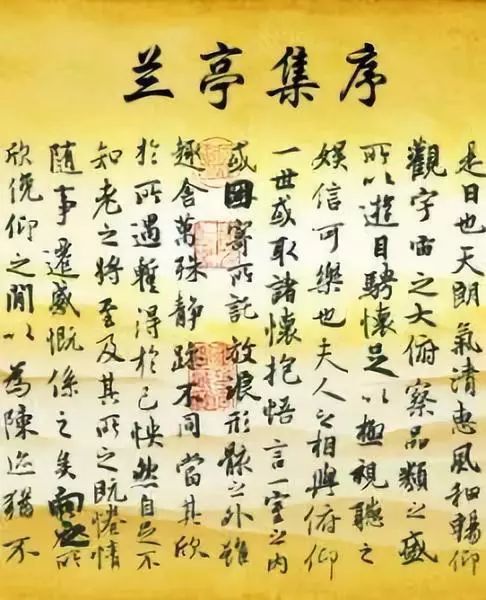 兰亭集序
是日也天朗氣清惠風和暢仰
觀宇宙之大俯察品類之盛
所以遊目騁懷足以極視聽之
娛信可樂也夫人之相與俯仰
一世或取諸懷抱悟言一室之內
或因寄所託放浪形骸之外雖
趣舍萬殊静躁不同當其欣
於所遇暫得於己怏然自足不
知老之將至及其所之既惓情
随事遷感慨係之矣向之所
欣俛仰之閒以為陳迹猶不